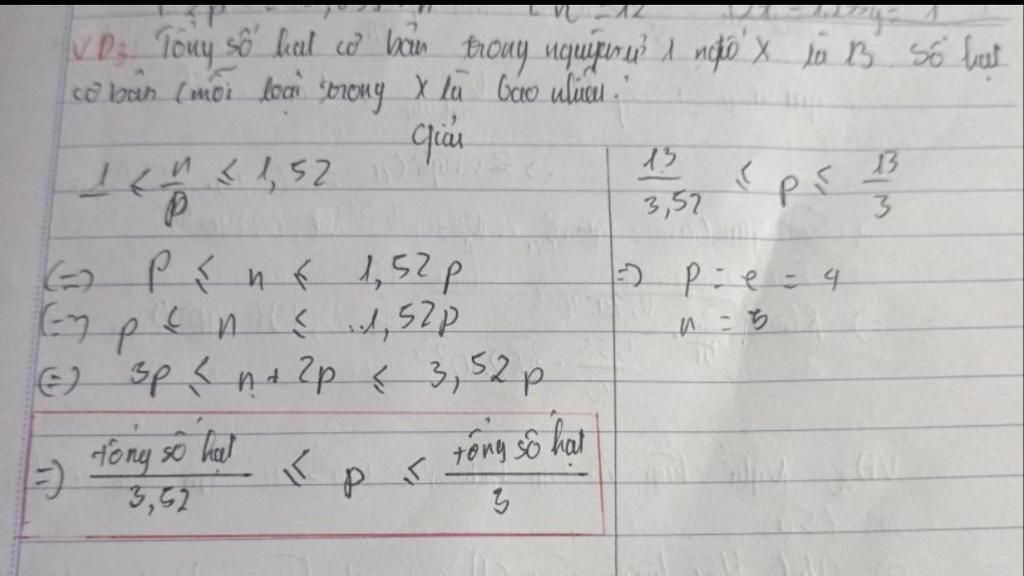 VD3 Tổng số hạt cơ bản trong nguyên tử 1 ngtố X là 13 số hạt
cơ bản (mỗi loại trong X là bao nhiêu.
Giải
1 ≤ n/p ≤ 1,52
(=) P ≤ n ≤ 1,52p
(=) p ≤ n ≤ ..1,52p
(=) 3p ≤ n + 2p ≤ 3,52p
=) tổng số hạt/3,52 ≤ p ≤ tổng số hạt/3
13/3,52 ≤ p ≤ 13/3
=) p = e = 4
n = 5